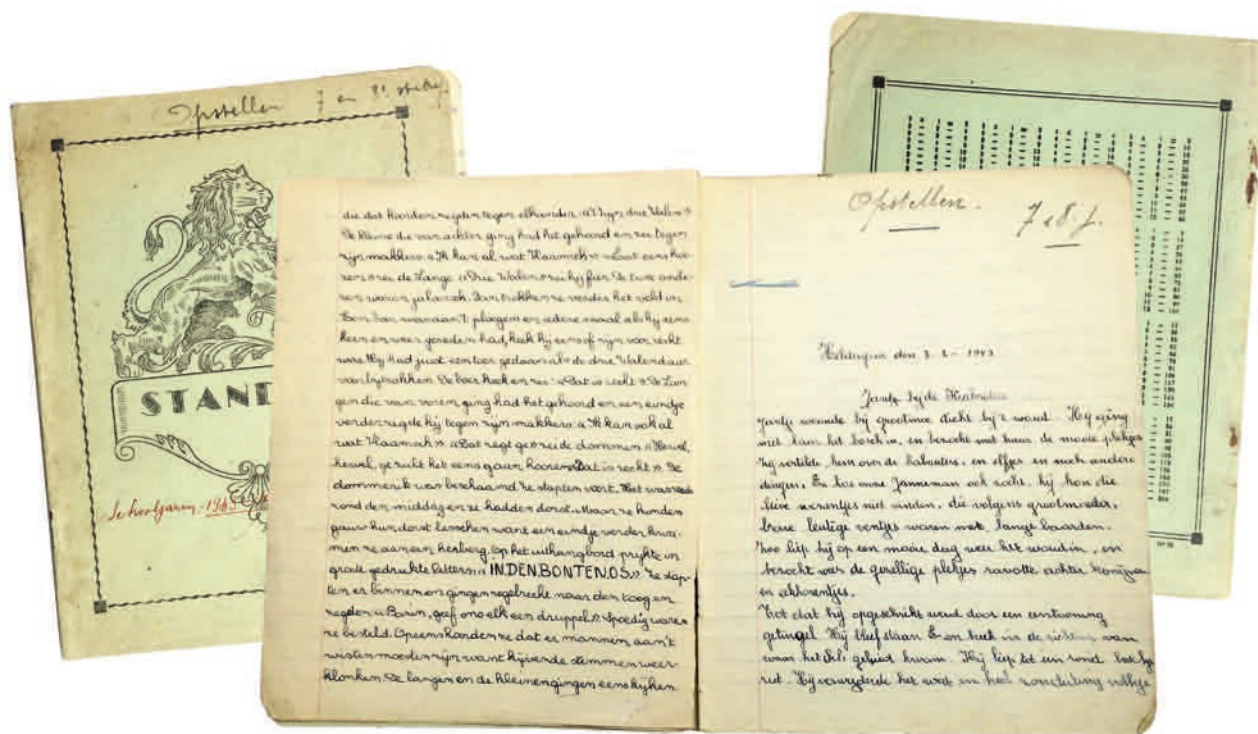 Opstellen 7 en 8e
STAND
Schooljaren: 1943
die dat hoorden zeijden tegen elkander: «'t Zijn drie Walen»
De kleine die van achter ging had het gehoord en zee tegen
zijn makkers: «Ik kan al wat Vlaamsch» «Laat eens hoo-
ren» zee de Lange «Drie Walen» zei hij fier. De twee ande-
ren waren jaloersch. Dan trokken ze verder het veld in.
Een boer was aan 't ploegen en iedere maal als hij eens
heen en weer gereden had, keek hij eens of zijn voor recht
was. Hij had juist een toer gedaan als de drie Walen daar
voorbijtrokken. De boer keek en zei: «Dat is recht» De Lan-
gen die van voren ging had het gehoord en een eindje
verder zegde hij tegen zijn makkers: «Ik kan ook al
wat Vlaamsch» «Dat zegt ge» zei de dommen «Hewel,
hewel, ge zult het eens gaan hooren «Dat is recht». De
dommerik was beschaamd. Ze stapten voort. Het was reeds
rond den middag en ze hadden dorst. Maar ze konden
gauw hun dorst lesschen want een eindje verder kwa-
men ze aan een herberg. Op het uithangbord prijkte in
groote gedrukte letters: «IN.DEN.BONTEN.OS.» Ze stap-
ten er binnen en gingen regelrecht naar den toog en
zegden: «Bazin, geef ons elk een druppel» Spoedig waren
ze besteld. Opeens hoorden ze dat er mannen aan 't
twisten moesten zijn want kijvende stemmen weer-
klonken. De langen en de kleinen gingen eens kijken
Opstellen. 7 e 8. j.
den 3-2-1943
Jantje bij de Kabouters
Jantje woonde bij grootmoe dicht bij 't woud. Hij ging
met haar het bosch in, en bezocht met haar de mooie plekjes
Zij vertelde hem over de kabouters, en elfjes en noch andere
dingen. En hoe onze Janneman ook zocht hij kon die
lieve wezentjes niet vinden, die volgens grootmoeder,
brave leutige ventjes waren met lange baarden.
Zoo liep hij op een mooie dag weer het woud in, en
bezocht weer de gezellige plekjes ravotte achter konijnen
en eekhorentjes.
Tot dat hij opgeschrikt werd door een eentoonig
getingel. Hij bleef staan En en keek in de richting van
waar het geluid kwam. Hij liep tot een rond
riet. Hij verwijderde het wat en